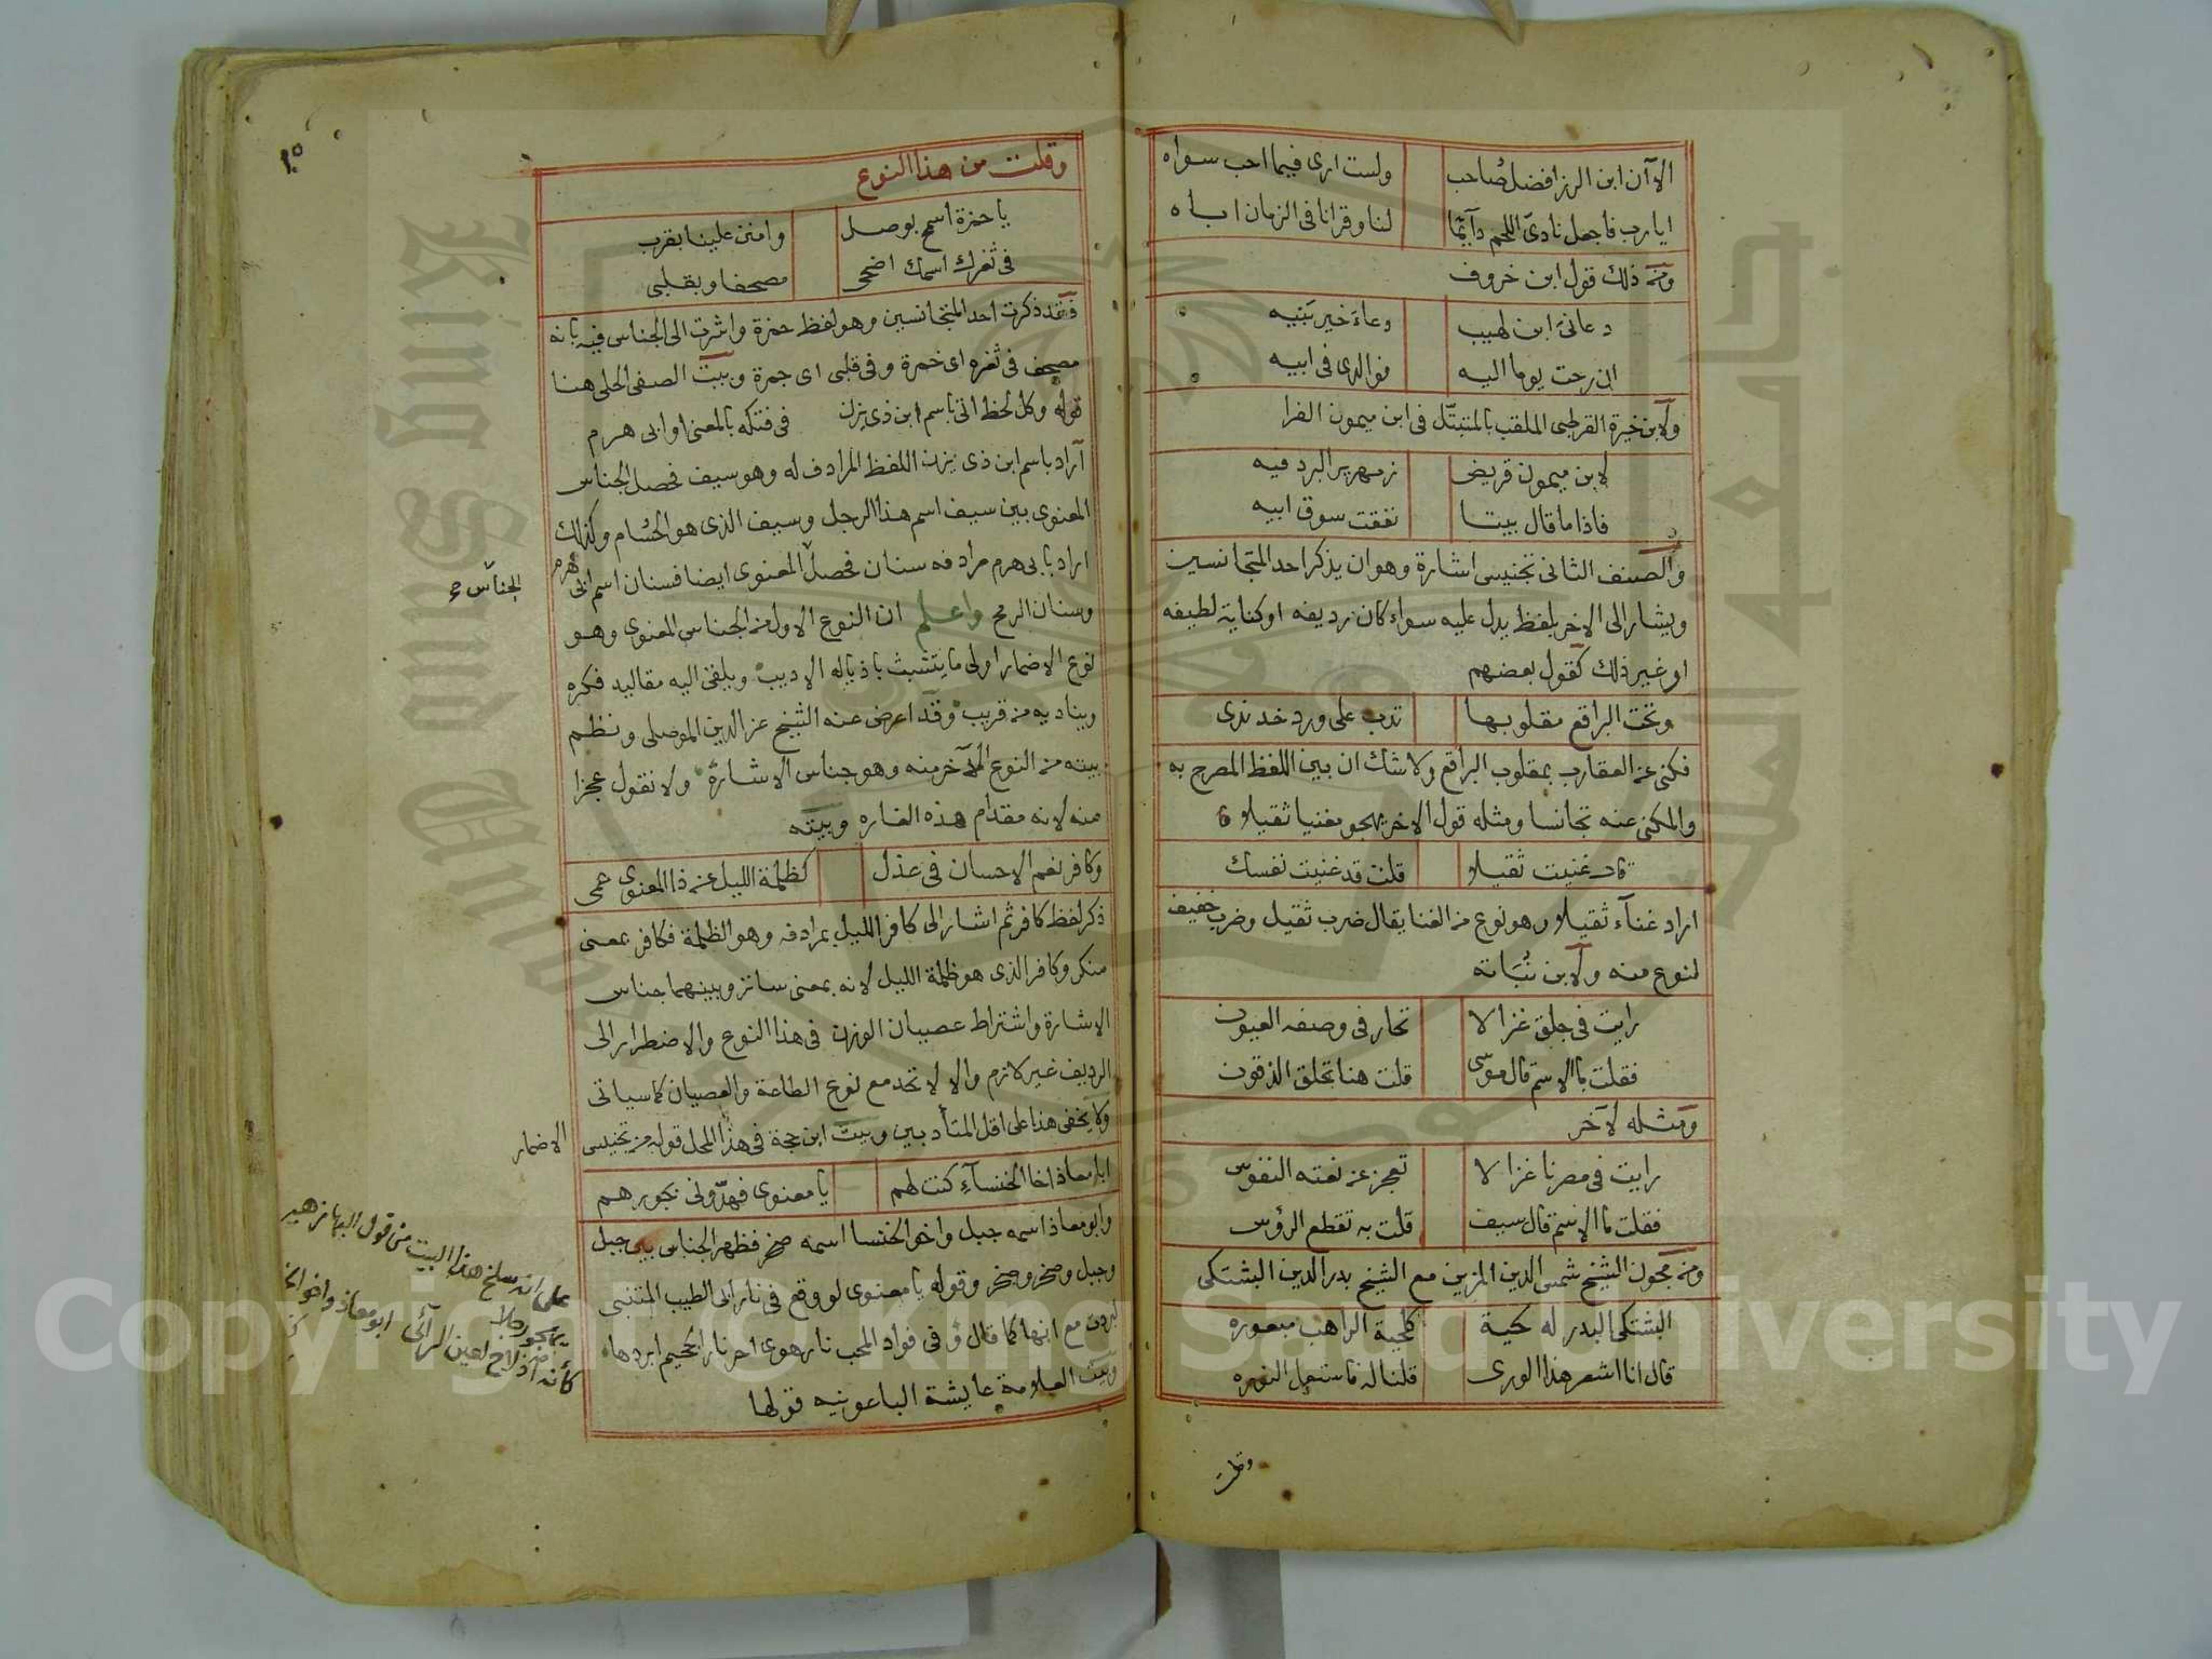 الا آن ابن الرزا فضل صاحب ولست ارى فيما احب سواه
ايا رب فاجعل نادى اللحم دآيما لنا وقرانا فى الزمان اباه
ومنه ذلك قول ابن خروف
دعانى ابن لهيب دعاء خير نبيه
ان رحت يوما اليه فوالدى فى ابيه
ولابن خيرة القرطبى الملقب بالمتبتل فى ابن ميمون الفرا
لابن ميمون قريض زمهرير البرد فيه
فاذا ما قال بيتا نفقت سوق ابيه
والصنف الثانى تجنيس اشارة وهو ان يذكر احد المتجانسين
ويشار الى الاخر بلفظ يدل عليه سواء كان رديفه او كناية لطيفه
او غير ذلك كقول بعضهم
وتحت البراقع مقلوبها تدب على ورد خد ندى
فكنى عن العقارب بمقلوب البراقع ولا شك ان بين اللفظ المصرح به
والمكنى عنه تجانسا ومثله قول الاخر يهجو مغنيا ثقيلا
قال غنيت ثقيلا قلت قد غنيت نفسك
اراد غنآء ثقيلا وهو نوع من الغنا يقال ضرب ثقيل وضرب خفيف
لنوع منه ولابن نباتة
رايت فى جلق غزالا تحار فى وصفه العيون
فقلت ما الاسم قال موسى قلت هنا تحلق الذقون
ومثله لآخر
رايت فى مصرنا غزالا تعجز عن نعته النفوس
فقلت ما الاسم قال سيف قلت به تقطع الرؤس
ومنه مجون الشيخ شمس الدين المزين مع الشيخ بدر الدين البشتكى
البشتكى البدر له لحية كلحية الراهب مبعوره
قال انا اشعر هذا الورى قلنا له فاستعمل النوره
وقلت
١٠٥
وقلت من هذا النوع
يا حمزة اسمح بوصل وامنن علينا بقرب
فى ثغرك اسمك اضحى مصحفا وبقلبى
فقد ذكرت احد المتجانسين وهو لفظ حمزة واشرت الى الجناس فيه بانه
مصحف فى ثغره اى خمرة وفى قلبى اى جمرة وبيت الصفى الحلى هنا
قوله وكل لحظ اتى باسم ابن ذى يزن فى فتكه بالمعنى او ابى هرم
آراد باسم ابن ذى يزن اللفظ المرادف له وهو سيف فحصل الجناس
المعنوى بين سيف اسم هذا الرجل وسيف الذى هو الحسام وكذلك
اراد بابى هرم مرادفه سنان فحصل المعنوى ايضا فسنان اسم ابى هرم
الجناس ح
وسنان الرمح واعلم ان النوع الاول من الجناس المعنوى وهو
نوع الاضمار اولى ما يتشبث باذياله الاديب ويلقى اليه مقاليد فكره
ويناديه من قريب وقد اعرض عنه الشيخ عز الدين الموصلى ونظم
بيته من النوع الآخر منه وهو جناس الاشارة ولا نقول عجزا
منه لانه مقدام هذه الغاره وبيته
وكافر نعم الاحسان فى عذل كظلمة الليل عن ذا المعنوى عمى
ذكر لفظ كافر ثم اشار الى كافر الليل بمرادفه وهو الظلمة فكافر بمعنى
منكر وكافر الذى هو ظلمة الليل لانه بمعنى ساتر وبينهما جناس
الاشارة واشتراط عصيان الوزن فى هذا النوع والاضطرار الى
الرديف غير لازم والا لاتحد مع نوع الطاعة والعصيان كما سياتى
ولا يخفى هذا على اقل المتأدبين وبيت ابن حجة فى هذا المحل قوله من تجنيس
الاضمار
ابا معاذ اخا الخنسآء كنت لهم يا معنوى فهدونى بجورهم
وابو معاذ اسمه جبل واخو الخنسا اسمه صخر فظهر الجناس بين جبل
وجبل وصخر وصخر وقوله يا معنوى لو وقع فى نار ابى الطيب المتنبى
لبردت مع انها كما قال وفى فواد المحب نار هوى احر نار الجحيم ابردها
وبيت العلامة عايشة الباعونيه قولها
على انه سلخ هذا البيت من قول البها زهير
يهجو رجلا
كأنه اذ لاح لعين الرآئى ابو معاذ واخو الخنسا